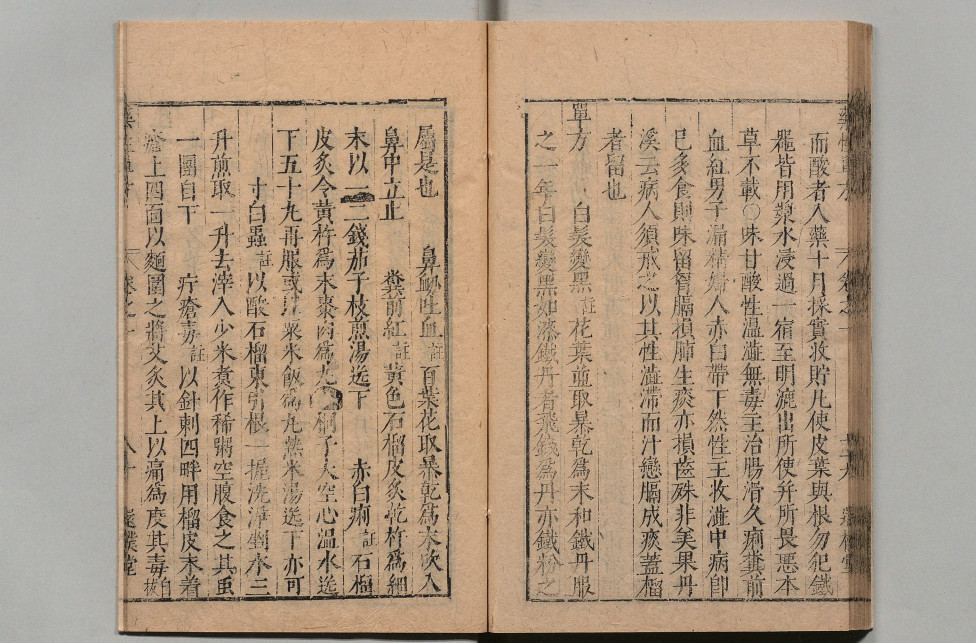 而酸者入藥十月採實收貯凡使皮葉與根勿犯鐵
器皆用漿水浸過一宿至明漉出所使幷所畏惡本
草不載〇味甘酸性溫澁無毒主治腸滑久痢糞前
血紅男子漏精婦人赤白帶下然性主收澁中病卽
已多食則味留胷膈損肺生痰亦損齒殊非美果丹
溪云病人須戒之以其性澁滯而汁戀膈成痰蓋榴
者留也
單方 白髮變黑註花葉並取暴乾爲末和鐵丹服
之一年白髮變黑如漆鐵丹者飛鐵爲丹亦鐵粉之
屬是也 鼻衂吐血註百葉花取暴乾爲末吹入
鼻中立止 糞前紅註黃色石榴皮炙乾杵爲細
末以一二錢茄子枝煎湯送下 赤白痢註石榴
皮炙令黃杵爲末棗肉爲丸 桐子大空心溫水送
下五十丸再服或 粟米飯爲丸熱米湯送下亦可
寸白蟲註以酸石榴東引根一握洗淨剉水三
升煎取一升去滓入少米煮作稀粥空腹食之其虫
一團自下 疔瘡毒註以針刺四畔用榴皮末着
瘡上四面以麵圍之將艾炙其上以痛爲度其毒自拔
卷之一
卷之一